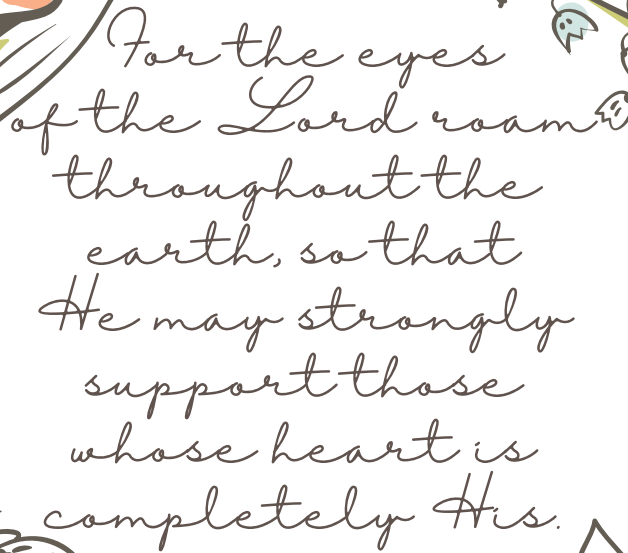 For the eyes
of the Lord roam
throughout the
earth, so that
He may strongly
support those
whose heart is
completely His.